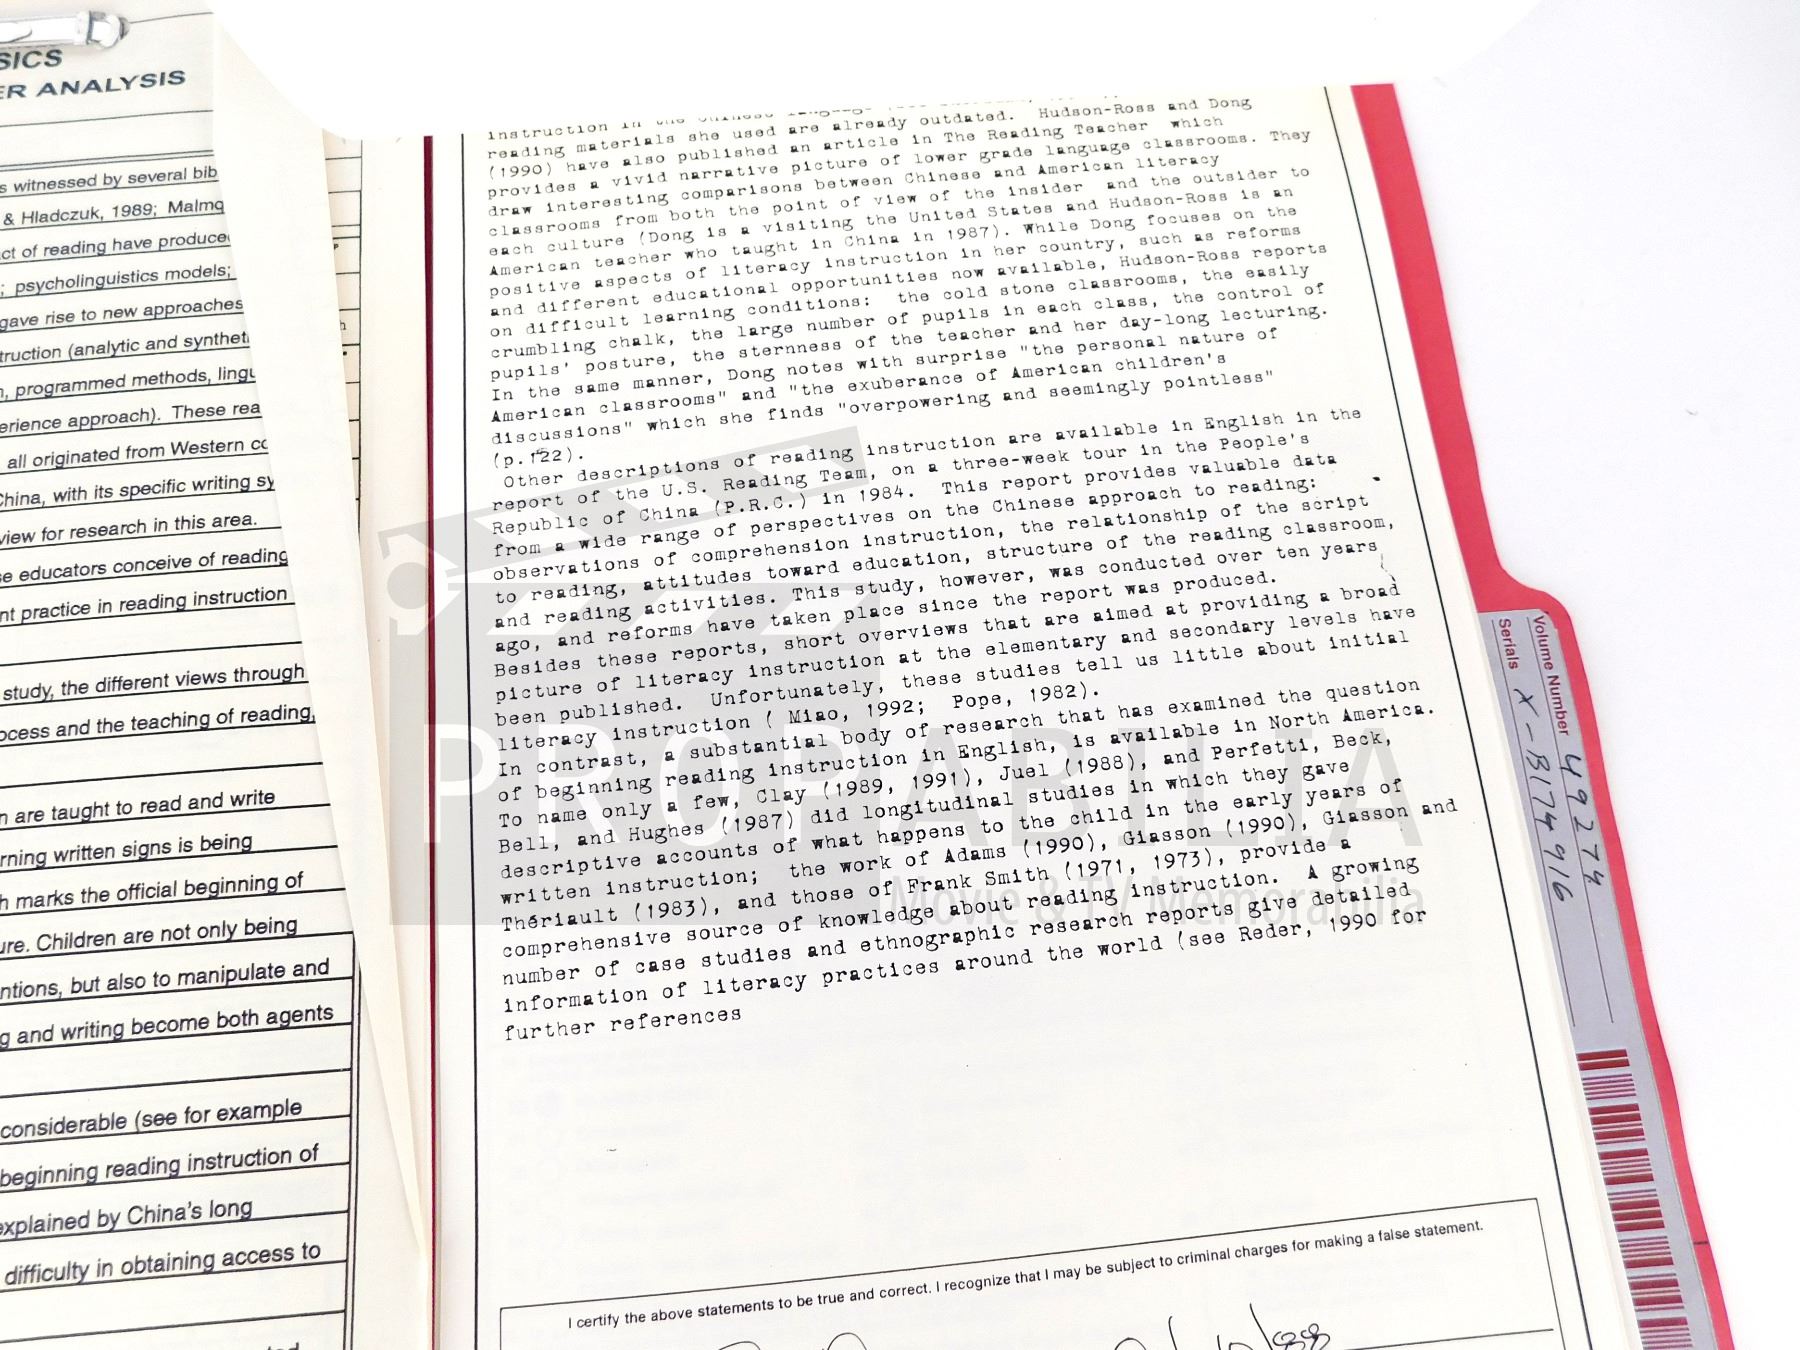 SICS
ER ANALYSIS
s witnessed by several bib
& Hladczuk, 1989; Malmq
ct of reading have produce
; psycholinguistics models;
gave rise to new approaches
truction (analytic and synthet
, programmed methods, lingu
erience approach). These rea
all originated from Western co
China, with its specific writing sy
view for research in this area.
se educators conceive of reading
nt practice in reading instruction
study, the different views through
ocess and the teaching of reading,
n are taught to read and write
rning written signs is being
h marks the official beginning of
ure. Children are not only being
ntions, but also to manipulate and
g and writing become both agents
considerable (see for example
beginning reading instruction of
explained by China's long
difficulty in obtaining access to
instruction in the Chinese language
reading materials she used are already outdated. Hudson-Ross and Dong
(1990) have also published an article in The Reading Teacher which
provides a vivid narrative picture of lower grade language classrooms. They
draw interesting comparisons between Chinese and American literacy
classrooms from both the point of view of the insider and the outsider to
each culture (Dong is a visiting the United States and Hudson-Ross is an
American teacher who taught in China in 1987). While Dong focuses on the
positive aspects of literacy instruction in her country, such as reforms
and different educational opportunities now available, Hudson-Ross reports
on difficult learning conditions: the cold stone classrooms, the easily
crumbling chalk, the large number of pupils in each class, the control of
pupils' posture, the sternness of the teacher and her day-long lecturing.
In the same manner, Dong notes with surprise "the personal nature of
American classrooms" and "the exuberance of American children's
discussions" which she finds "overpowering and seemingly pointless"
(p.122).
Other descriptions of reading instruction are available in English in the
report of the U.S. Reading Team, on a three-week tour in the People's
Republic of China (P.R.C.) in 1984. This report provides valuable data
from a wide range of perspectives on the Chinese approach to reading:
observations of comprehension instruction, the relationship of the script
to reading, attitudes toward education, structure of the reading classroom,
and reading activities. This study, however, was conducted over ten years
ago, and reforms have taken place since the report was produced.
Besides these reports, short overviews that are aimed at providing a broad
picture of literacy instruction at the elementary and secondary levels have
been published. Unfortunately, these studies tell us little about initial
literacy instruction ( Miao, 1992; Pope, 1982).
In contrast, a substantial body of research that has examined the question
of beginning reading instruction in English, is available in North America.
To name only a few, Clay (1989, 1991), Juel (1988), and Perfetti, Beck,
Bell, and Hughes (1987) did longitudinal studies in which they gave
descriptive accounts of what happens to the child in the early years of
written instruction; the work of Adams (1990), Giasson (1990), Giasson and
Thériault (1983), and those of Frank Smith (1971, 1973), provide a
comprehensive source of knowledge about reading instruction. A growing
number of case studies and ethnographic research reports give detailed
information of literacy practices around the world (see Reder, 1990 for
further references
I certify the above statements to be true and correct. I recognize that I may be subject to criminal charges for making a false statement.
Volume Number 49274
Serials X-B174916
PROPABILIA
Movie & TV Memorabilia